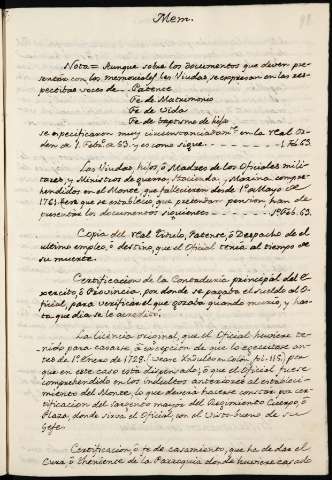 Mem.
Nota = Aunque sobre los Documentos que deven pre-
sentar con los memoriales las Viudas, se expresan en las res-
pectibas voces de Patente
Fe de Matrimonio
Fe de Vida
Fe de baptismo de hijo
se expecificaron muy circunstanciadamte. en la real Or-
den de 1. Febro. de 63. y es como sigue 1. Feb. 63.
Las Viudas, hijos, ó Madres de los Oficiales mili-
tares, y Ministros de guerra, Hacienda, y Marina compre-
hendidos en el Monte, que fallecieron desde 1º. Mayo de
1761. en que se estableció, que pretendan pension, han de
presentar los documentos siguientes 1º. Feb. 63.
Copia del real Titulo, Patente, ó Despacho de el
ultimo empleo, ó destino, que el Oficial tenia al tiempo de
su muerte.
Certificacion de la Contaduria principal del E-
xercito, ó Provincia, por donde se pagaba el sueldo al O-
ficial, para verificar el que gozaba quando murio, y has-
ta que dia se le acreditó.
La licencia original, que el Oficial huviere te-
nido para casarse, á excepcion de que lo executase an-
tes de 1º. Enero de 1729. (vease fol. 115.) por-
que en este caso está dispensado; ó que el Oficial fuese
comprehendido en los indultos anteriores al estableci-
miento del Monte, lo que deverá hacerse constar por cer-
tificacion del Sargento mayor del Regimiento Cuerpo, ó
Plaza, donde sirva el Oficial, con el Visto bueno de su
Gefe.
Certificacion, ó fe de casamiento, que ha de dar el
Cura, ó theniente de la Parroquia donde huviere casado